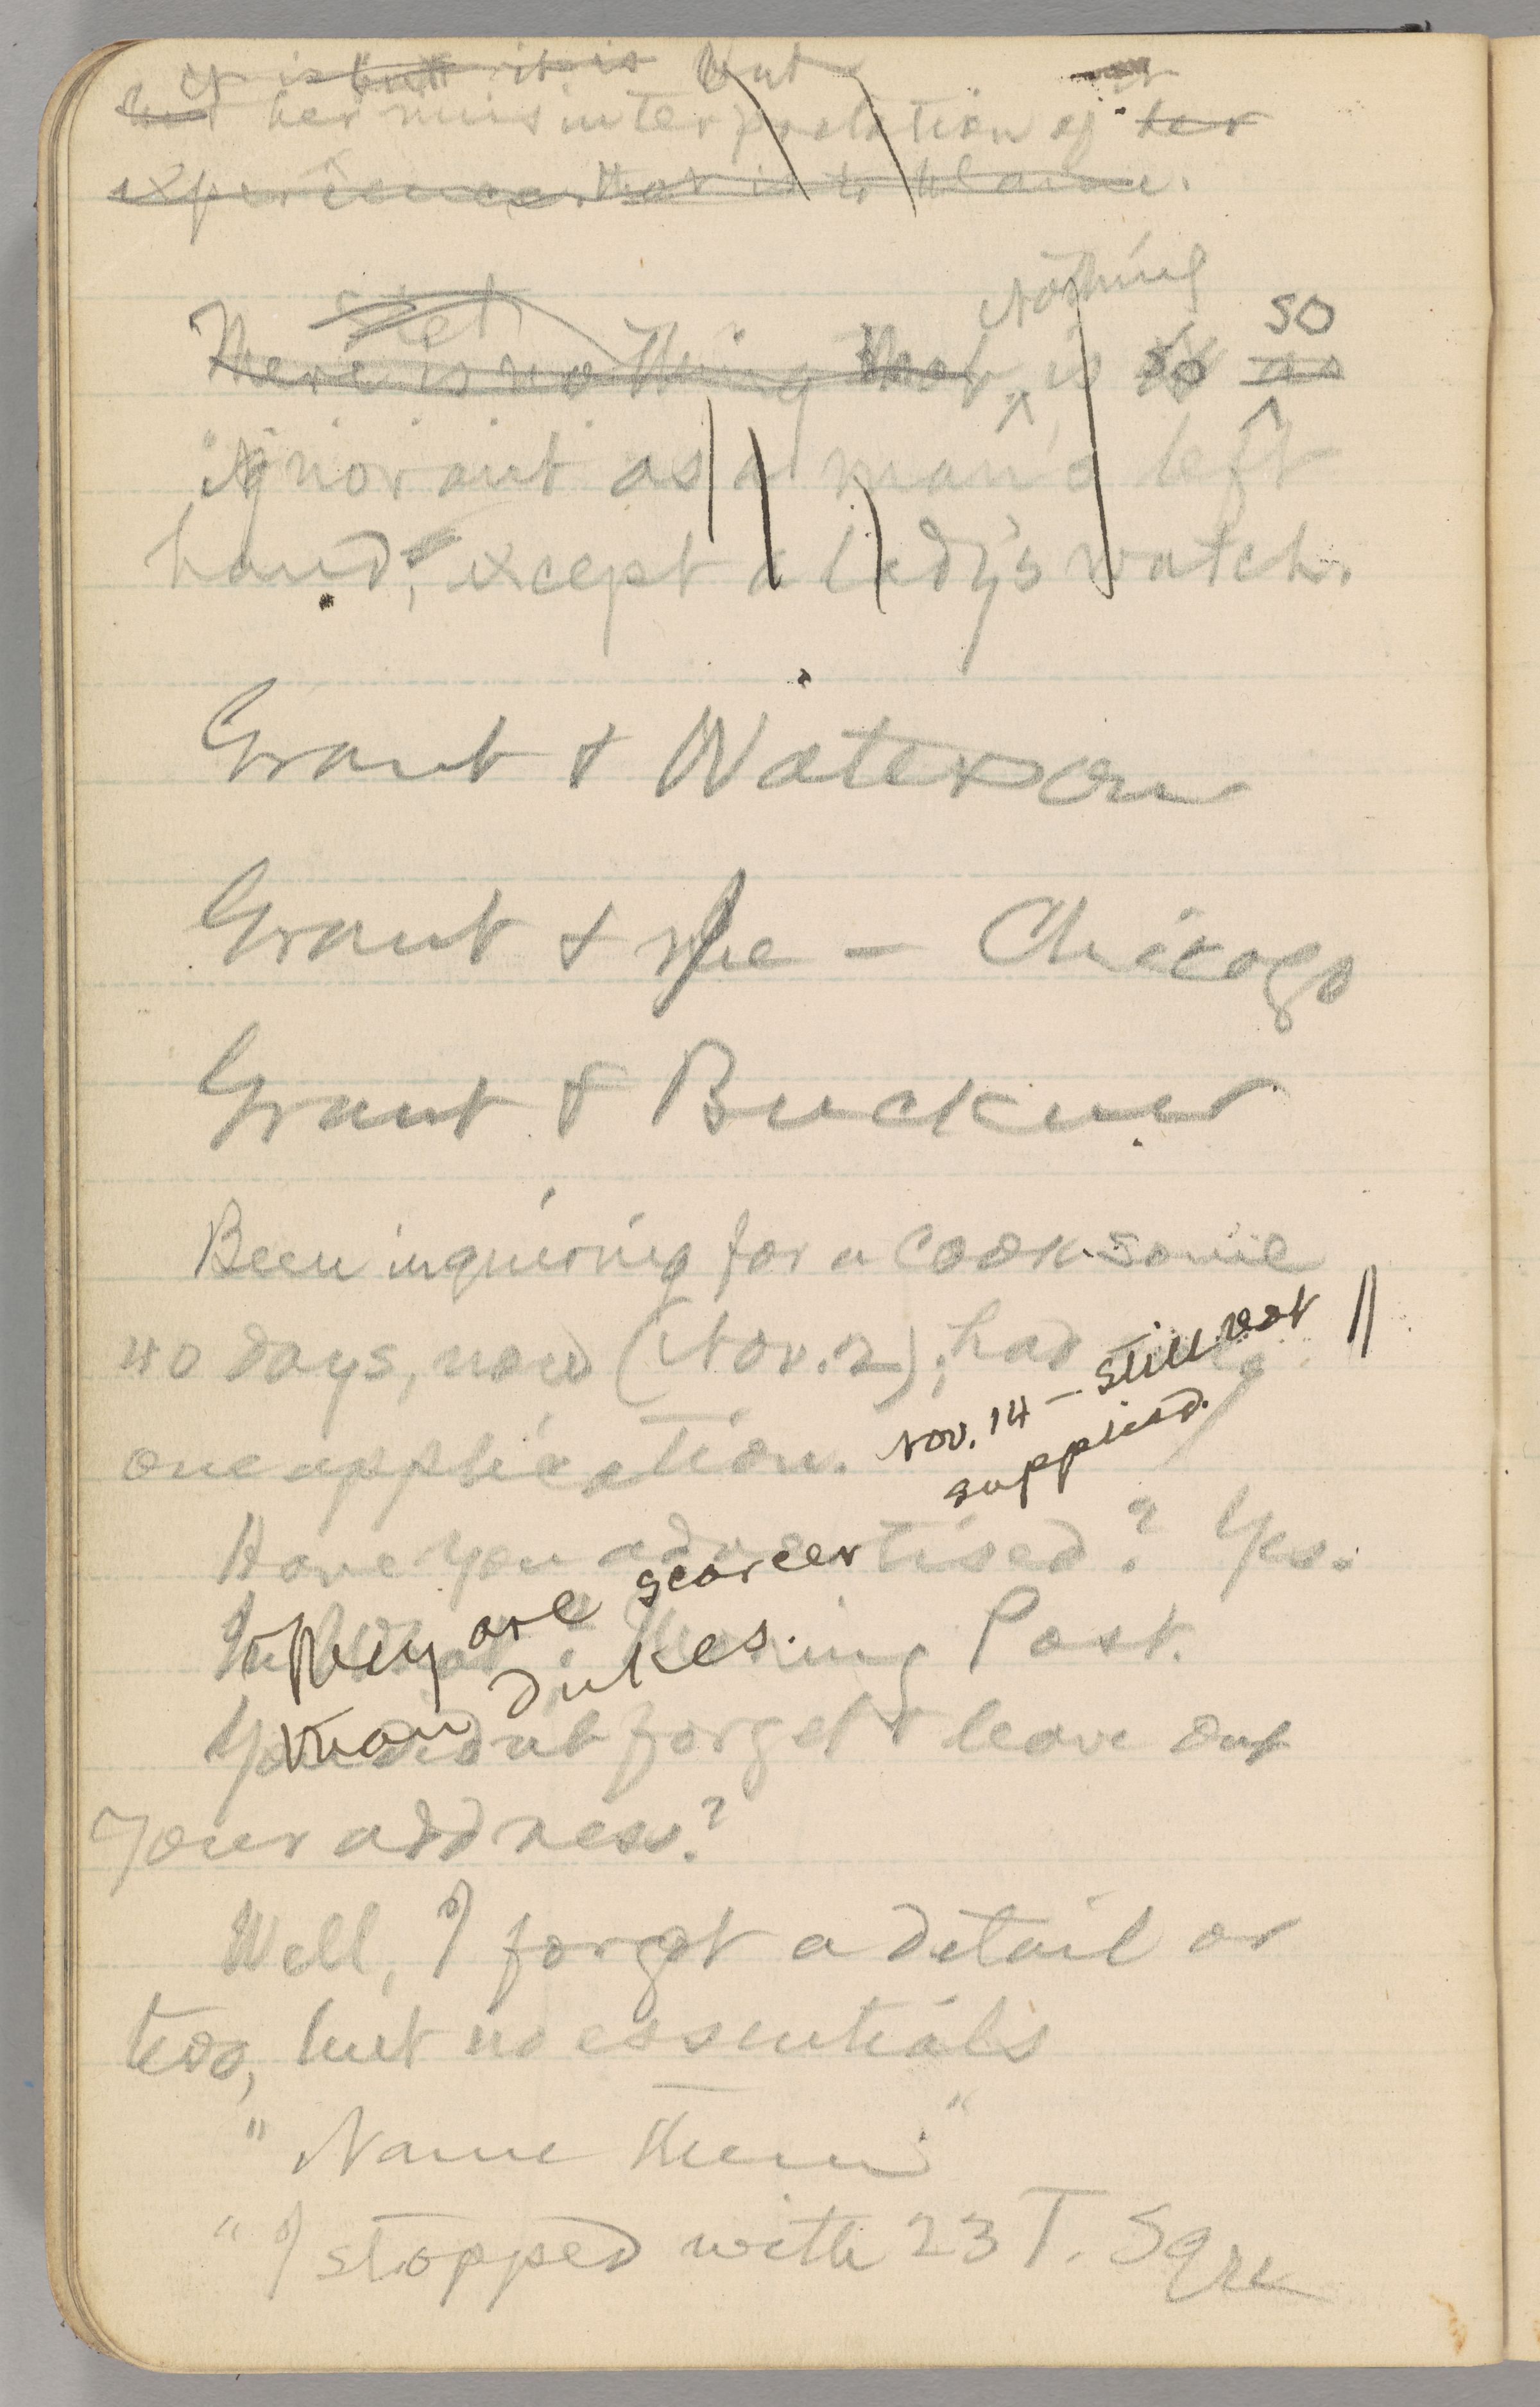 it is but it is but
her misinterpretation of her
experience that is to blame.
stet
Nothing
so
There is no thing that is so as
ignorant as a man's left
hand, except a lady's watch.
Grant & Waterson
Grant & me — Chicago
Grant & Buckner
Been inquiring for a cook some
40 days, now (Nov. 2); had
one application. Nov. 14 — still not
supplied.
Have you advertised? Yes.
They are scarcer
than dukes.
In What? Morning Post.
You didn't forget & leave out
your address?
Well, I forgot a detail or
two, but no essentials
"Name them"
"I stopped with 23 T. Sqre